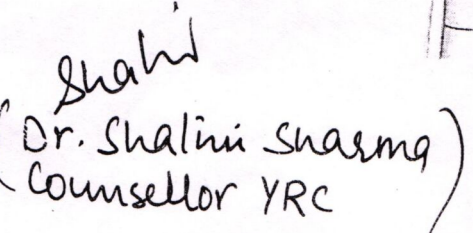 Shalini
(Dr. Shalini Sharma)
Counsellor YRC